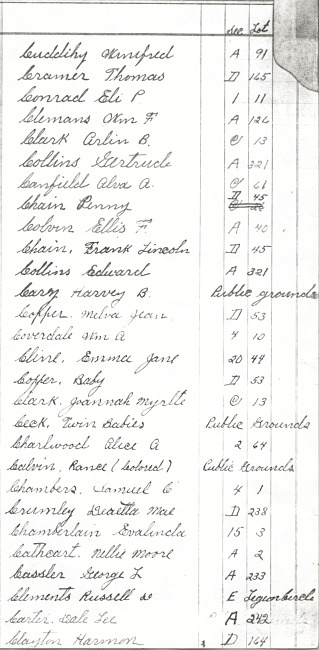 Sec. Lot
Cuddihy Winifred A 91
Cramer Thomas D 165
Conrad Eli P 1 11
Clemans Wm F A 126
Clark Arlin B. C 13
Collins Gertrude A 321
Canfield Alva A. C 61
Chain Penny D 45
Colvin Ellis F. A 40
Chain, Frank Lincoln D 45
Collins Edward A 321
Harvey B. Public grounds
Copper, Melva Jean D 53
Coverdale Wm A 4 10
Cline, Emma Jane 20 49
Copper, Baby D 53
Clark, Joannah Myrtle C 13
Twin Babies Public Grounds
Charlwood Alice A 2 64
Calvin, Rance (Colored) Public Grounds
Chambers, Samuel C 4 1
Crumley Mae D 238
Chamberlain Evalinda 15 3
Cathcart, Nellie Moore A 2
Cassler George L A 233
Clements Russell E Legion circle
Carter, Dale Lee A 242
Clayton Harmon D 164